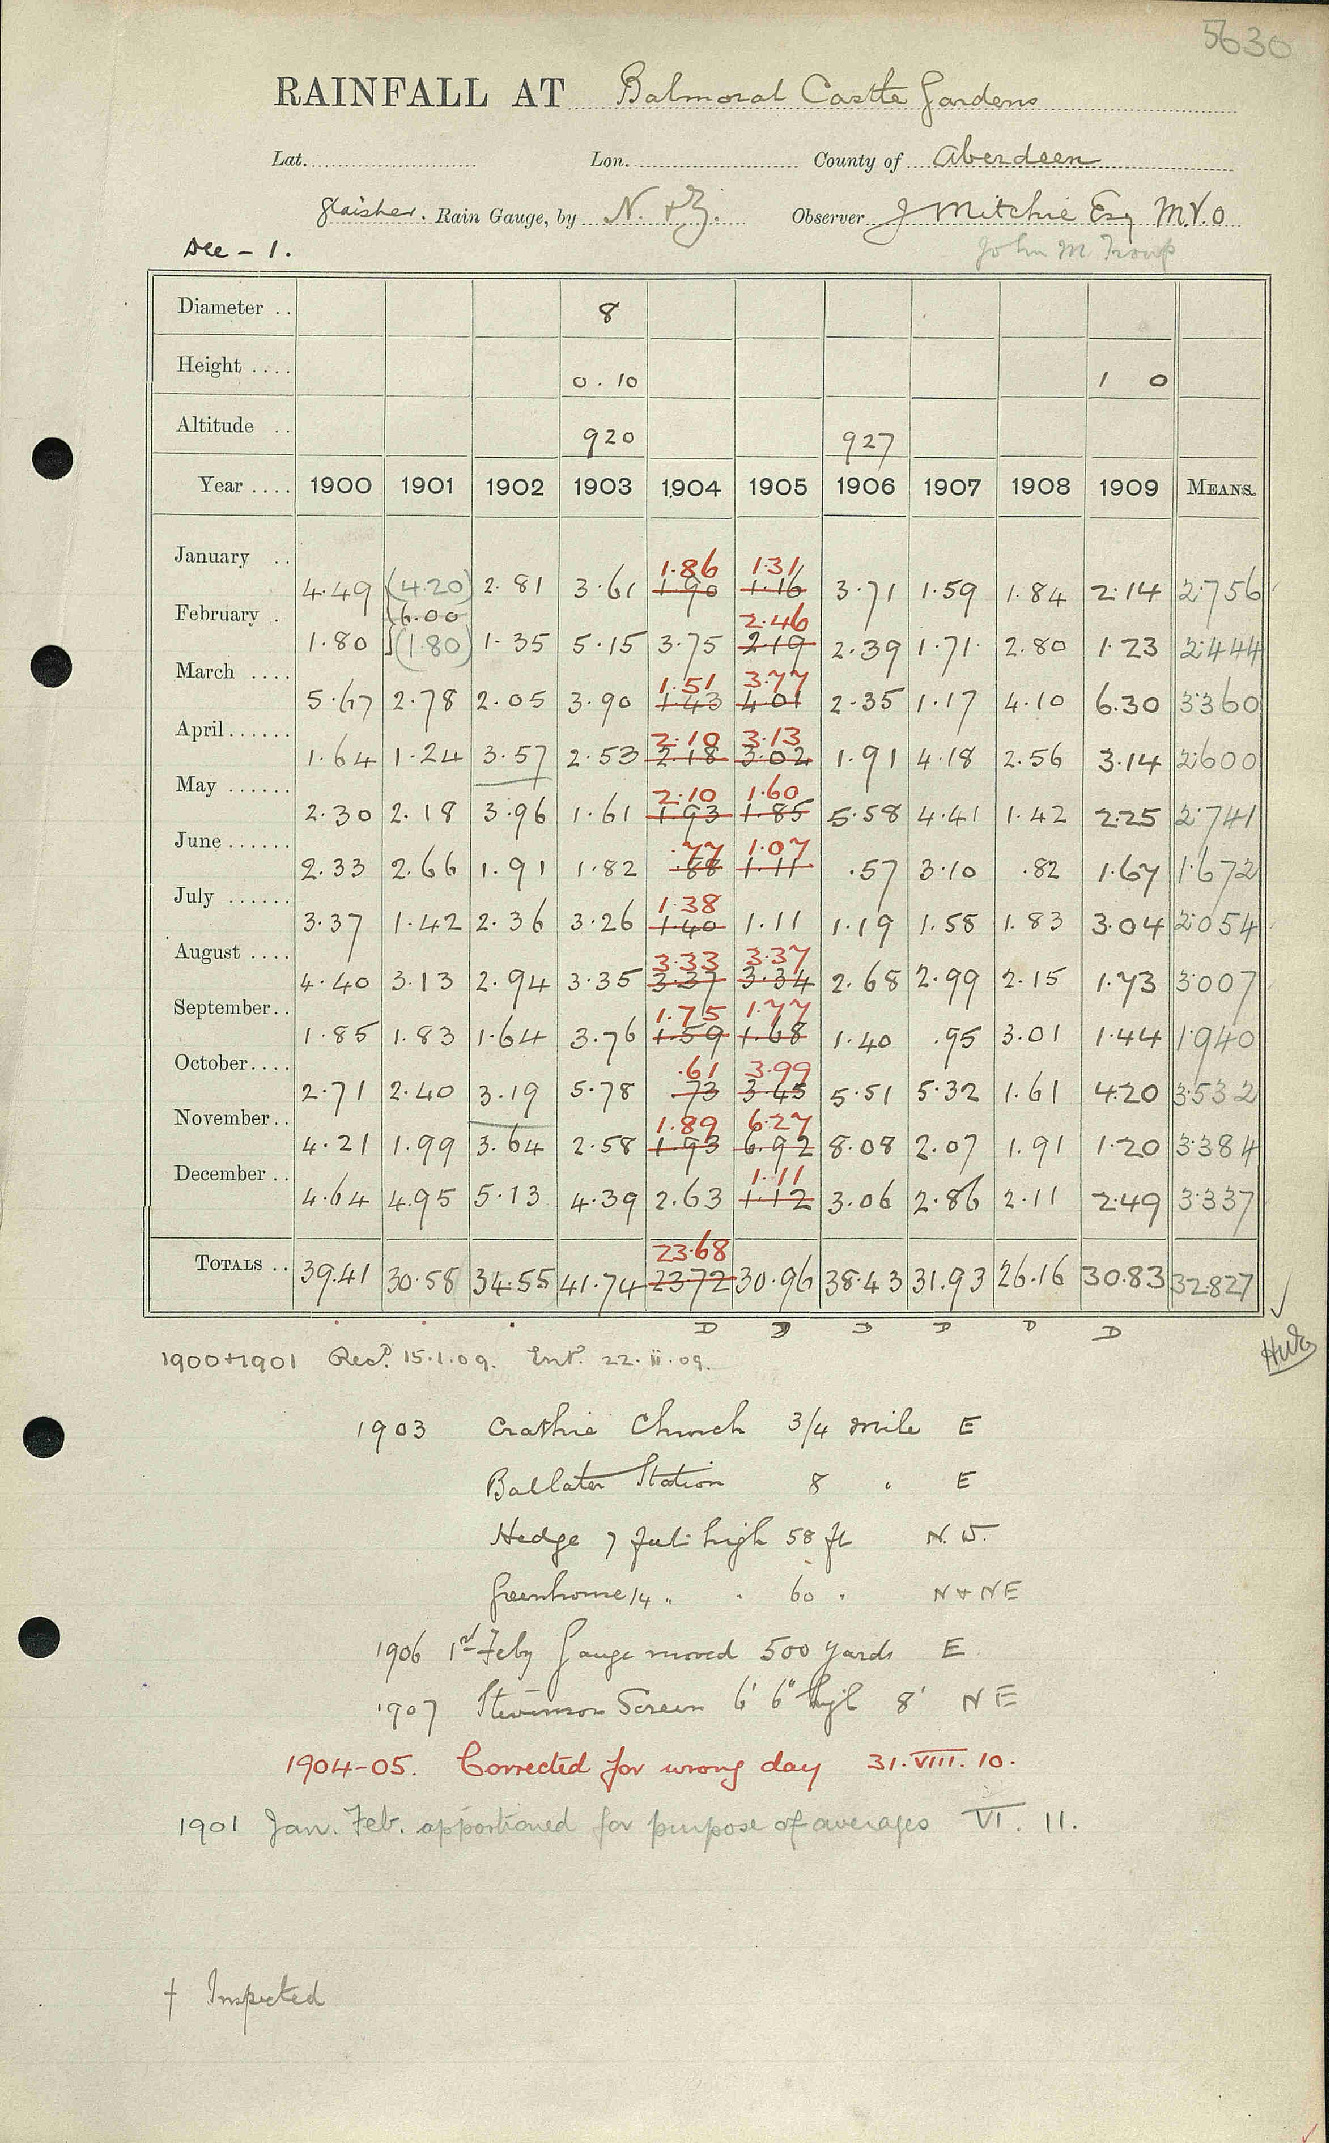 5630
RAINFALL AT Balmoral Castle Gardens
Lat. Lon. County of Aberdeen
Glaisher. Rain Gauge, by N. & Z. Observer J Mitchie Esq M.V.O
Dee - 1. John M Troup
Diameter .. 8
Height .... 0.10 1 0
Altitude .. 920 927
Year .... 1900 1901 1902 1903 1904 1905 1906 1907 1908 1909 MEANS.
1.86 1.31
January .. 4.49 (4.20) 2.81 3.61 1.90 1.16 3.71 1.59 1.84 2.14 2.756
6.00 2.46
February . 1.80 (1.80) 1.35 5.15 3.75 2.19 2.39 1.71 2.80 1.23 2.444
1.51 3.77
March .... 5.67 2.78 2.05 3.90 1.43 4.01 2.35 1.17 4.10 6.30 3.360
2.10 3.13
April ...... 1.64 1.24 3.57 2.53 2.18 3.02 1.91 4.18 2.56 3.14 2.600
2.10 1.60
May ...... 2.30 2.18 3.96 1.61 1.93 1.85 5.58 4.41 1.42 2.25 2.741
.77 1.07
June ...... 2.33 2.66 1.91 1.82 .88 1.11 .57 3.10 .82 1.67 1.672
1.38
July ...... 3.37 1.42 2.36 3.26 1.40 1.11 1.19 1.58 1.83 3.04 2.054
3.33 3.37
August .... 4.40 3.13 2.94 3.35 3.37 3.34 2.68 2.99 2.15 1.73 3.007
1.75 1.77
September .. 1.85 1.83 1.64 3.76 1.59 1.68 1.40 .95 3.01 1.44 1.940
.61 3.99
October .... 2.71 2.40 3.19 5.78 73 3.45 5.51 5.32 1.61 4.20 3.532
1.89 6.27
November .. 4.21 1.99 3.64 2.58 1.93 6.92 8.08 2.07 1.91 1.20 3.384
1.11
December .. 4.64 4.95 5.13 4.39 2.63 1.12 3.06 2.86 2.11 2.49 3.337
23.68
TOTALS .. 39.41 30.58 34.55 41.74 23.72 30.96 38.43 31.93 26.16 30.83 32.827
D D D D D D
1900+1901 Recd. 15.1.09. Entd. 22.ii.09.
1903 Crathie Church 3/4 mile E
Ballater Station 8 " E
Hedge 7 feet high 58 ft N.W.
Greenhouse 14 " " 60 " N + NE
1906 1st Feby Gauge moved 500 yards E.
1907 Stevenson Screen 6' 6" high 8' NE
1904-05. Corrected for wrong day 31.VIII.10.
1901 Jan. Feb. apportioned for purpose of averages VI. 11.
† Inspected